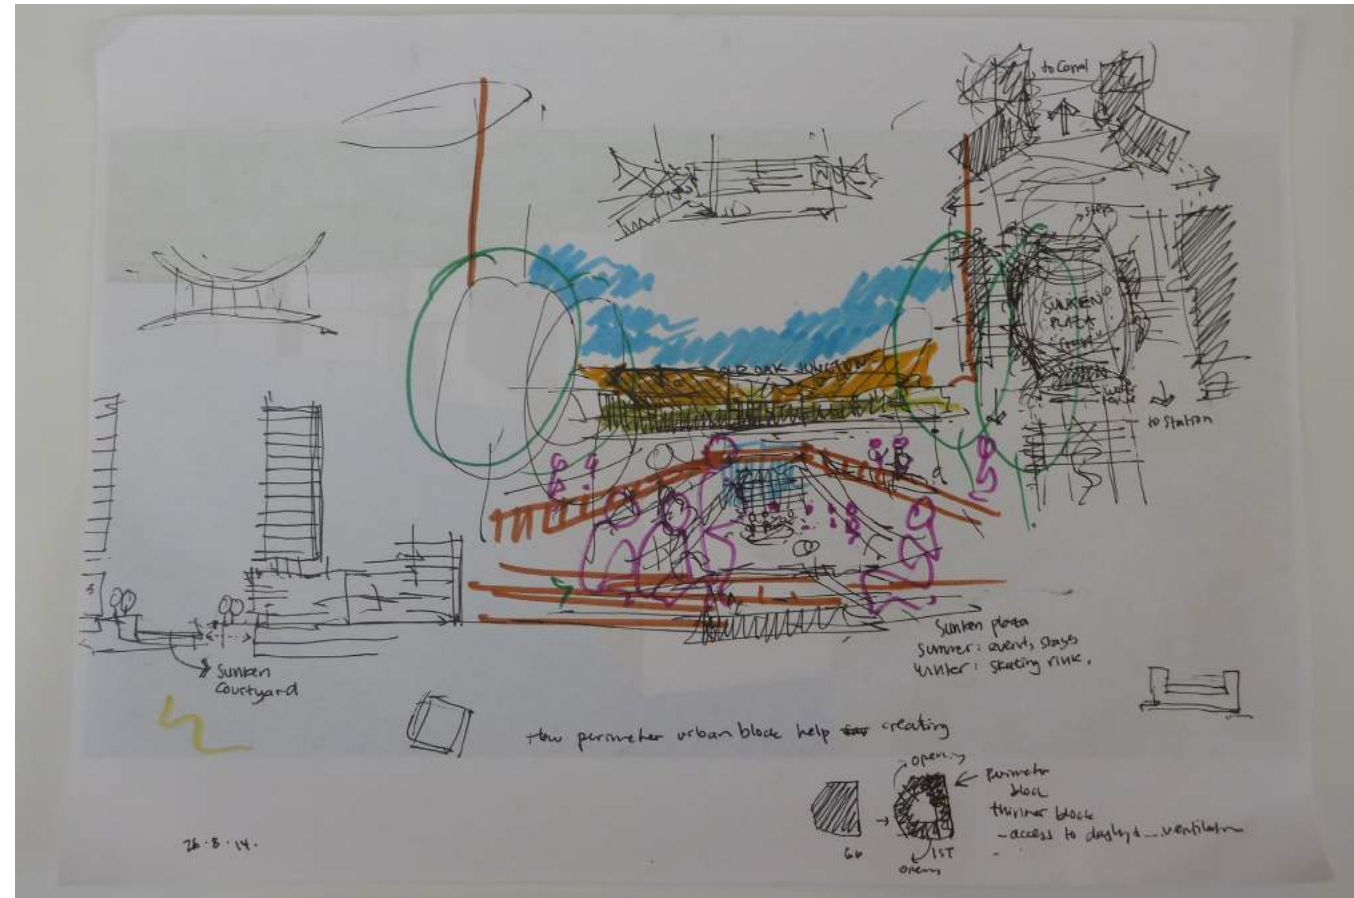 to Canal
steps
SUNKEN
PLAZA
to Station
OLD OAK JUNCTION
Sunken plaza
summer: events, stages
winter: skating rink.
Sunken
Courtyard
How perimeter urban block help creating
opening
perimeter
block
thinner block
- access to daylight ventilation
1ST
opening
26.8.14.